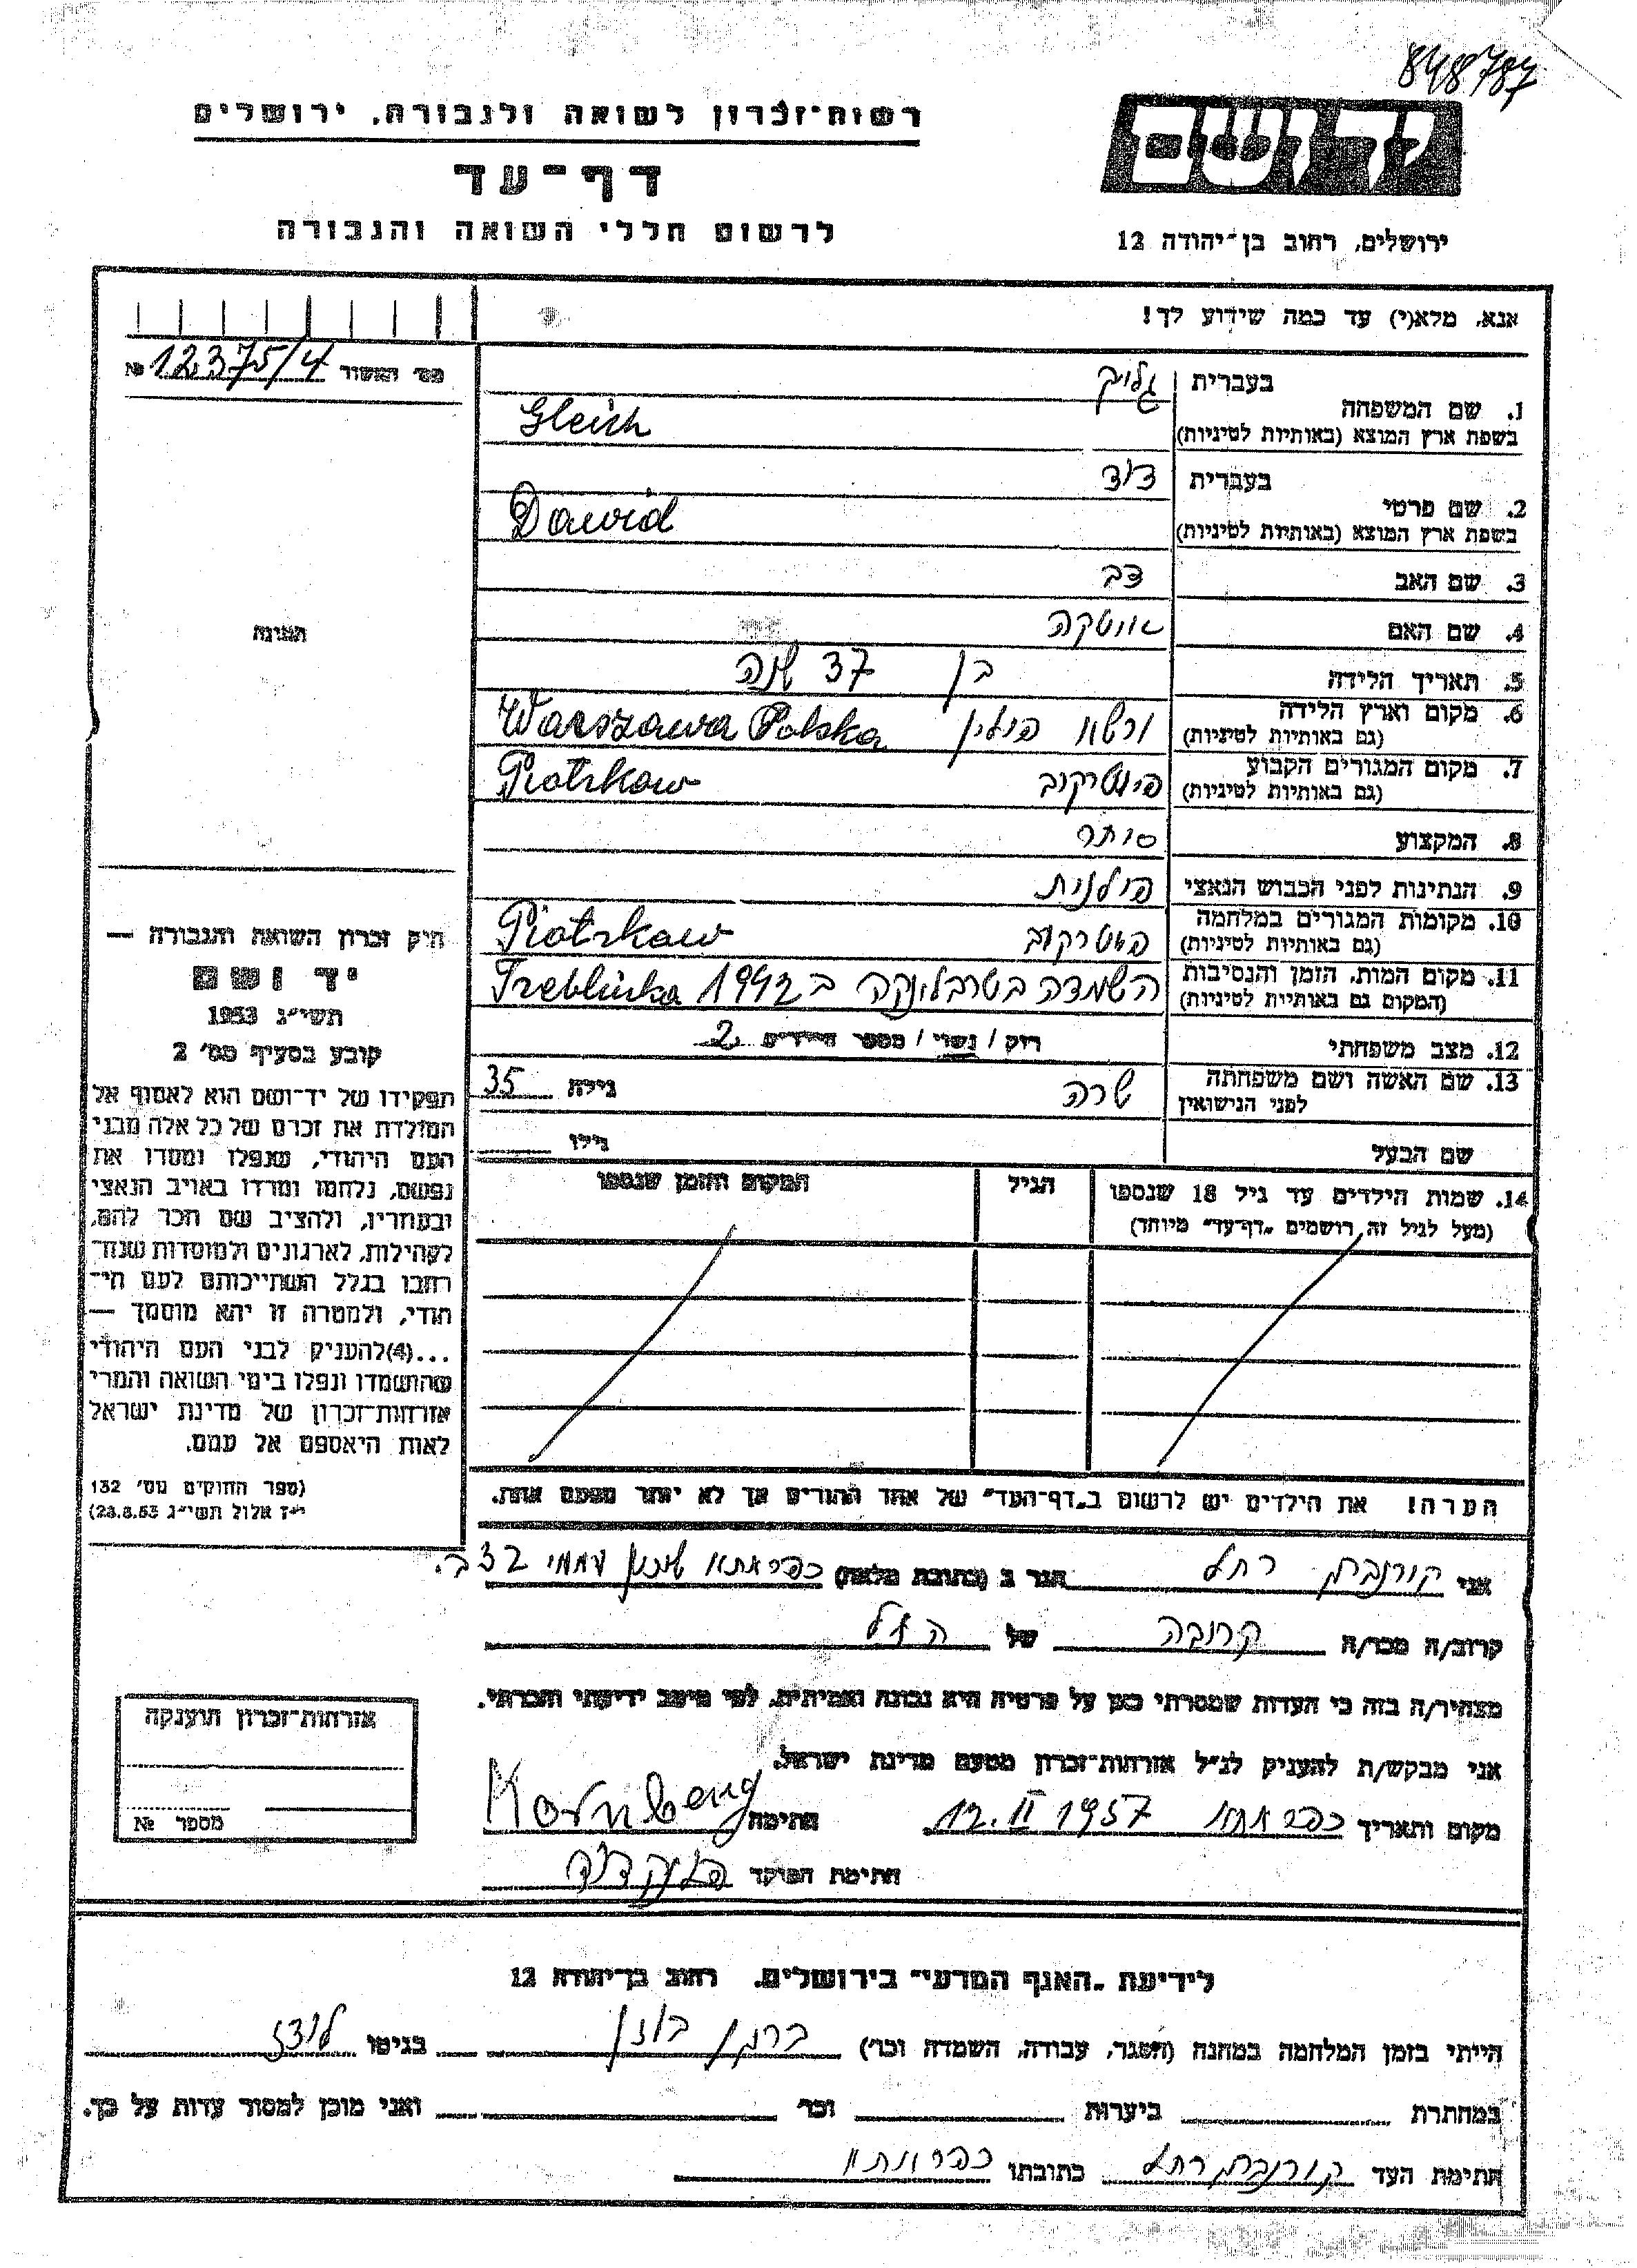 848787
רשות־זכרון לשואה ולגבורה, ירושלים
דף־עד
לרשום חללי השואה והגבורה
יד ושם
ירושלים, רחוב בן־יהודה 12
אנא, מלא(י) עד כמה שידוע לך!
מס׳ האשור 12375/4 №
1. שם המשפחה בעברית גלייך
בשפת ארץ המוצא (באותיות לטיניות) Gleich
2. שם פרטי בעברית דוד
בשפת ארץ המוצא (באותיות לטיניות) Dawid
3. שם האב דב
4. שם האם
5. תאריך הלידה בן 37 שנה
6. מקום וארץ הלידה ורשא פולין Warszawa Polska
(גם באותיות לטיניות)
7. מקום המגורים הקבוע פיוטריקוב Piotrkow
(גם באותיות לטיניות)
8. המקצוע סוחר
9. הנתינות לפני הכבוש הנאצי פולנית
10. מקומות המגורים במלחמה פיוטרקוב Piotrkow
(גם באותיות לטיניות)
11. מקום המות, הזמן והנסיבות השמדה בטרבלינקה ב 1942 Treblinka
(המקום גם באותיות לטיניות)
12. מצב משפחתי רווק / נשוי / מספר הילדים 2
13. שם האשה ושם משפחתה שרה גילה 35
לפני הנישואין
שם הבעל גילו
14. שמות הילדים עד גיל 18 שנספו הגיל המקום והזמן שנספו
(מעל לגיל זה, רושמים „דף־עד״ מיוחד)
הערה! את הילדים יש לרשום ב„דף־העד״ של אחד ההורים אך לא יותר מפעם אחת.
תמונה
חוק זכרון השואה והגבורה —
יד ושם
תשי״ג 1953
קובע בסעיף מס׳ 2
תפקידו של יד־ושם הוא לאסוף אל
המולדת את זכרם של כל אלה מבני
העם היהודי, שנפלו ומסרו את
נפשם, נלחמו ומרדו באויב הנאצי
ובעוזריו, ולהציב שם וזכר להם,
לקהילות, לארגונים ולמוסדות שנח־
רבו בגלל השתייכותם לעם הי־
הודי, ולמטרה זו יהא מוסמך —
...(4) להעניק לבני העם היהודי
שהושמדו ונפלו בימי השואה והמרי
אזרחות־זכרון של מדינת ישראל
לאות היאספם אל עמם.
(ספר החוקים מס׳ 132
י״ז אלול תשי״ג 28.8.53)
אני קורנברג רחל הגר ב (כתובת מלאה) כפר אתא שיכון עממי 32 ב.
קרוב/ה מכר/ה קרובה של הנ״ל
מצהיר/ה בזה כי העדות שמסרתי כאן על פרטיה היא נכונה ואמיתית, לפי מיטב ידיעתי והכרתי.
אני מבקש/ת להעניק לנ״ל אזרחות־זכרון מטעם מדינת ישראל.
מקום ותאריך כפר אתא 12.II 1957 חתימה Kornberg
חתימת הפוקד
אזרחות־זכרון הוענקה
מספר №
לידיעת „האגף המדעי״ בירושלים, רחוב בן־יהודה 12
הייתי בזמן המלחמה במחנה (הסגר, עבודה, השמדה וכו׳) ברגן בלזן בגיטו לודז
במחתרת ביערות וכו׳ ואני מוכן למסור עדות על כך.
חתימת העד קורנברג רחל כתובתו כפר אתא